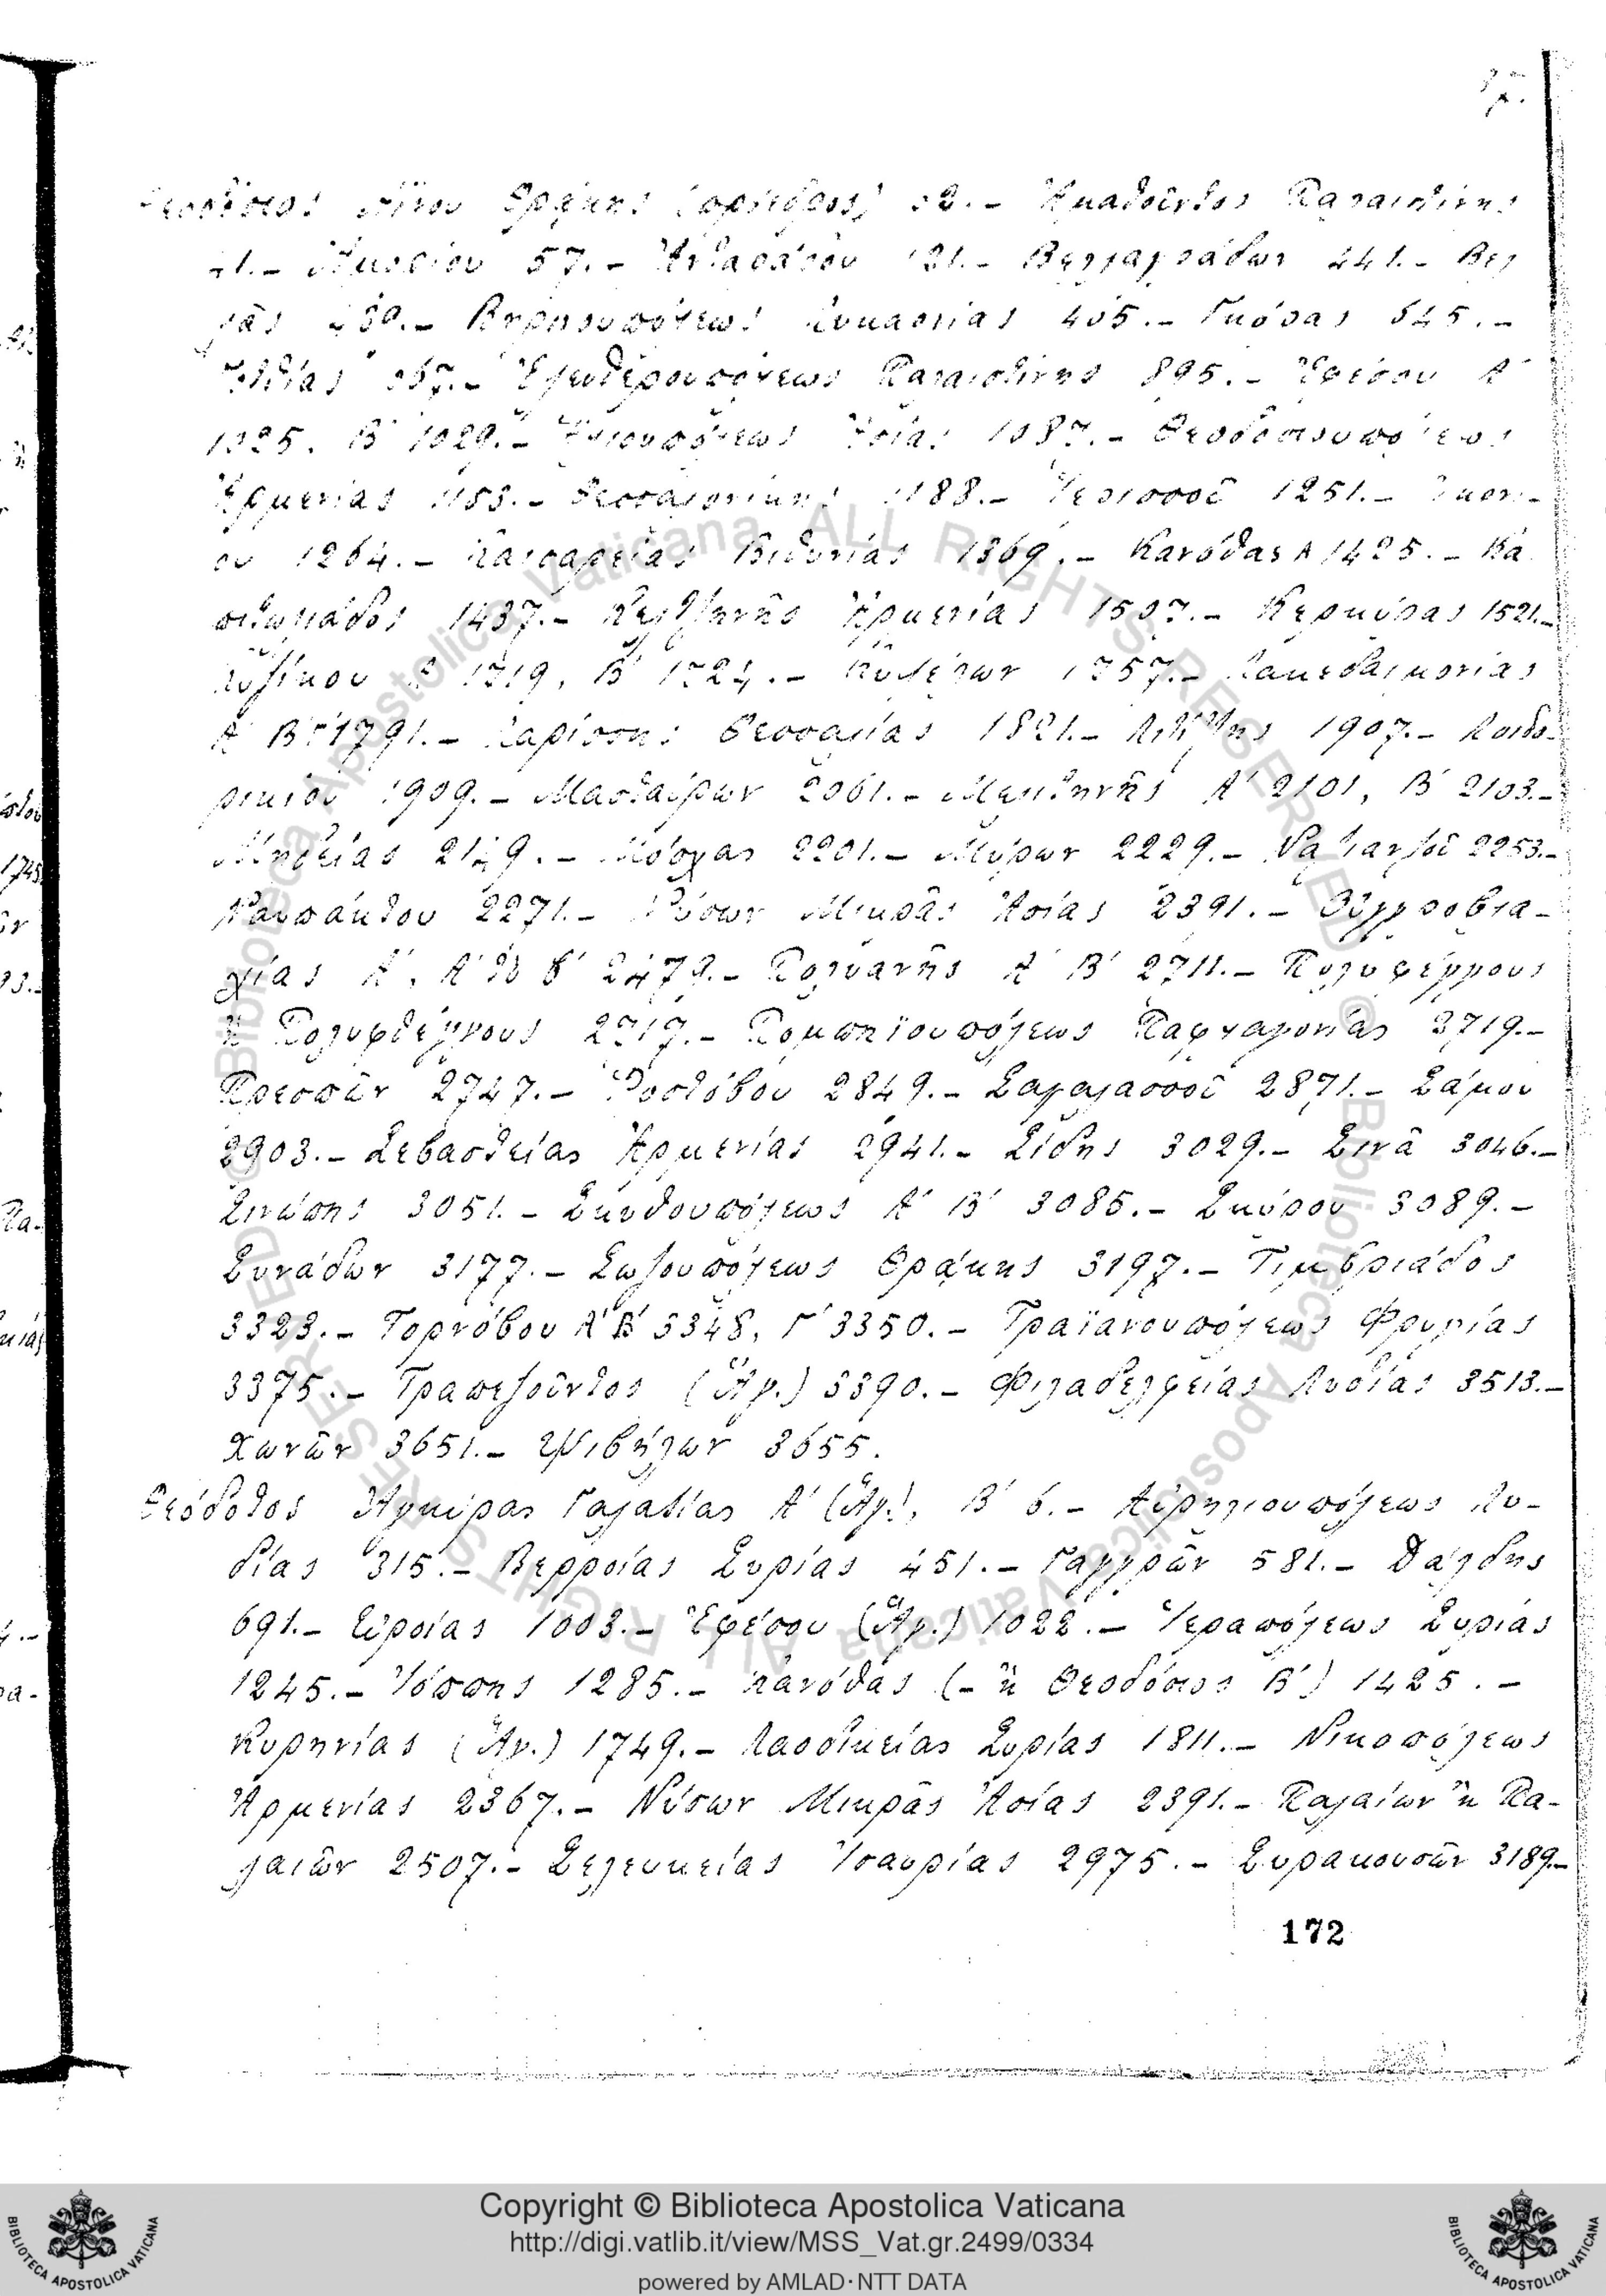 Θεοδόσιος Αἴνου Θρᾴκης (πρόεδρος) Ἀμαθοῦντος Παλαιστίνης
57.– Ἀνταράδου 121.– Βελλαγράδων 441.– Βελ
Βηρινουπόλεως Λυκαονίας 405.– Γκόρας 645.–
Ἐλευθερουπόλεως Παλαιστίνης 895.– Ἐφέσου Α΄
1025, Β΄ 1029.– Ἀσίας 1087.– Θεοδοσιουπόλεως
Ἀρμενίας 1153.– Θεσσαλονίκης 1188.– Ἱερισσοῦ 1251.– Ἰκονί-
ου 1264.– Καισαρείας Βιθυνίας 1369.– Κανόθας Α 1425.– Κα
πιτωλιάδος 1437.– Κελτζηνῆς Ἀρμενίας 1507.– Κερκύρας 1521.–
Κυζίκου Α΄ 1719, Β΄ 1724.– Κυψέλων 1757.– Λακεδαιμονίας
Α΄ Β΄ 1791.– Λαρίσσης Θεσσαλίας 1821.– 1907.– Λοιδο-
ρικίου 1909.– Μασταύρων 2061.– Μελιτηνῆς Α΄ 2101, Β΄ 2103.–
Μηδείας 2129.– Μόσχας 2201.– Μύρων 2229.– Ναζιανζοῦ 2253.–
Ναυπάκτου 2271.– Νύσων Μικρᾶς Ἀσίας 2391.– Οὑγγροβλα-
χίας Α΄, Α΄ τὸ β΄ 2479.– Πολυανῆς Α΄ Β΄ 2711.– Πολυφέγγους
ἢ Πολυφθέγγους 2717.– Πομπηϊουπόλεως Παφλαγονίας 2719.–
Πρεσπῶν 2747.– Ῥοστόβου 2849.– Σαγαλασσοῦ 2871.– Σάμου
2903.– Σεβαστείας Ἀρμενίας 2941.– Σίδης 3029.– Σινᾶ 3046.–
Σινώπης 3051.– Σκυθουπόλεως Α΄ Β΄ 3085.– Σκύρου 3089.–
Συνάδων 3177.– Σωζουπόλεως Θρᾴκης 3197.– Τιμβριάδος
3323.– Τορνόβου Α΄ Β΄ 3348, Γ΄ 3350.– Τραϊανουπόλεως Φρυγίας
3375.– Τραπεζοῦντος (Ἅγ.) 3390.– Φιλαδελφείας Λυδίας 3513.–
Χωνῶν 3651.– Ψιβήλων 3655.
Θεόδοτος Ἀγκύρας Γαλατίας Α΄ (Ἅγ.), Β΄ 6.– Αὐρηλιουπόλεως Λυ-
δίας 315.– Βερροίας Συρίας 451.– Γαγγρῶν 581.– Δάλδης
691.– Εὐροίας 1003.– Ἐφέσου (Ἅγ.) 1022.– Ἱεραπόλεως Συρίας
1245.– Ἰόππης 1285.– Κανόθας (– ἢ Θεοδόσιος Β΄) 1425.–
Κυρηνίας (Ἅγ.) 1749.– Λαοδικείας Συρίας 1811.– Νικοπόλεως
Ἀρμενίας 2367.– Νύσων Μικρᾶς Ἀσίας 2391.– Παλαίων ἢ Πα-
λαιῶν 2507.– Σελευκείας Ἰσαυρίας 2975.– Συρακουσῶν 3189.–
172
Copyright © Biblioteca Apostolica Vaticana
http://digi.vatlib.it/view/MSS_Vat.gr.2499/0334
powered by AMLAD·NTT DATA